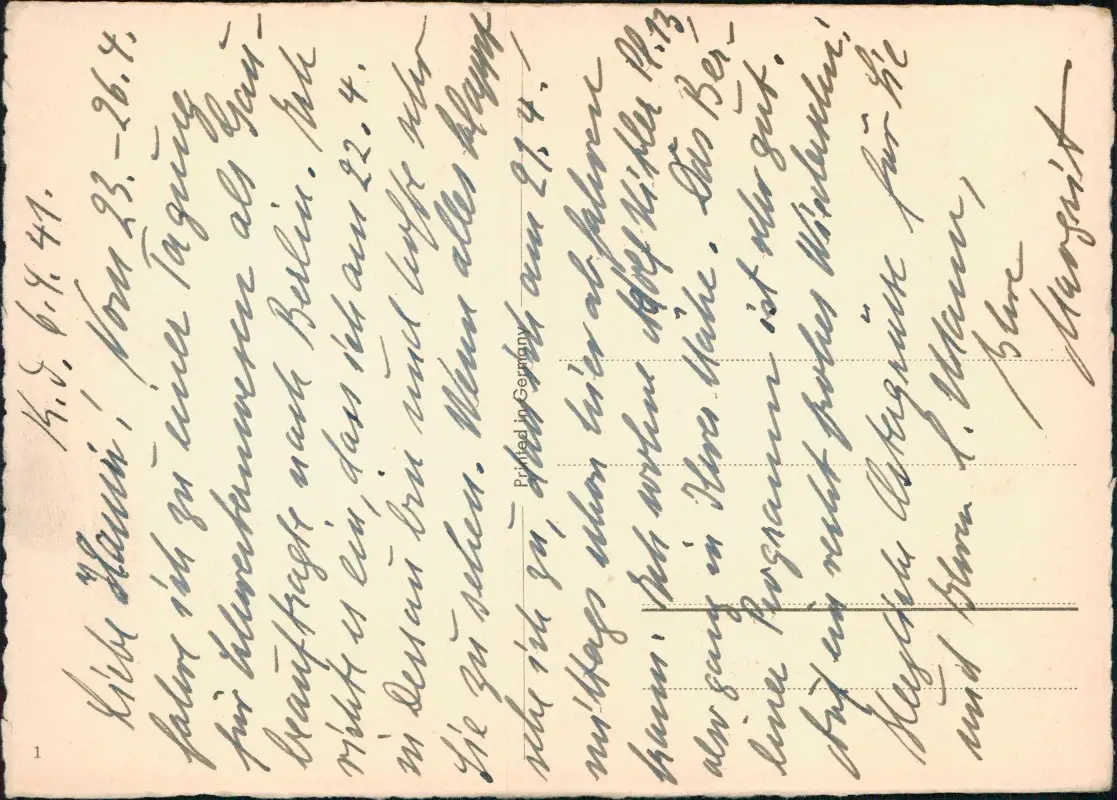 K.D. 6.4.41.
Liebe Hanni, Vom 23.–26.4.
fahre ich zu einer Tagung
für als Gau-
beauftragte nach Berlin. Ich
richte es ein, dass ich am 22.4.
in Dessau bin und hoffe sehr
Sie zu sehen. Wenn alles klappt
sehe ich zu, dass ich am 21.4.!
mittags schon hier abfahren
kann. Ich wohne Adolf Hitler Pl. 13
also ganz in Ihrer Nähe. Das Ber-
liner Programm ist sehr gut.
Auf ein recht frohes Wiedersehen!
Herzliche Ostergrüße für Sie
und Ihren l. Mann,
Ihre
Margrit
Printed in Germany
1